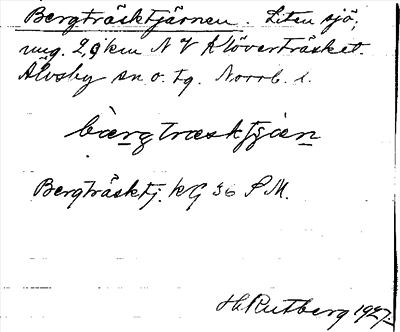 Bergträsktjärnen. Liten sjö,
ung. 2,9 km N V Klöverträsket.
Älvsby sn o. tg. Norrb. l.
bærgtræsktjæn
Bergträsktj. kG 36 S M.
H. Rutberg 1927.